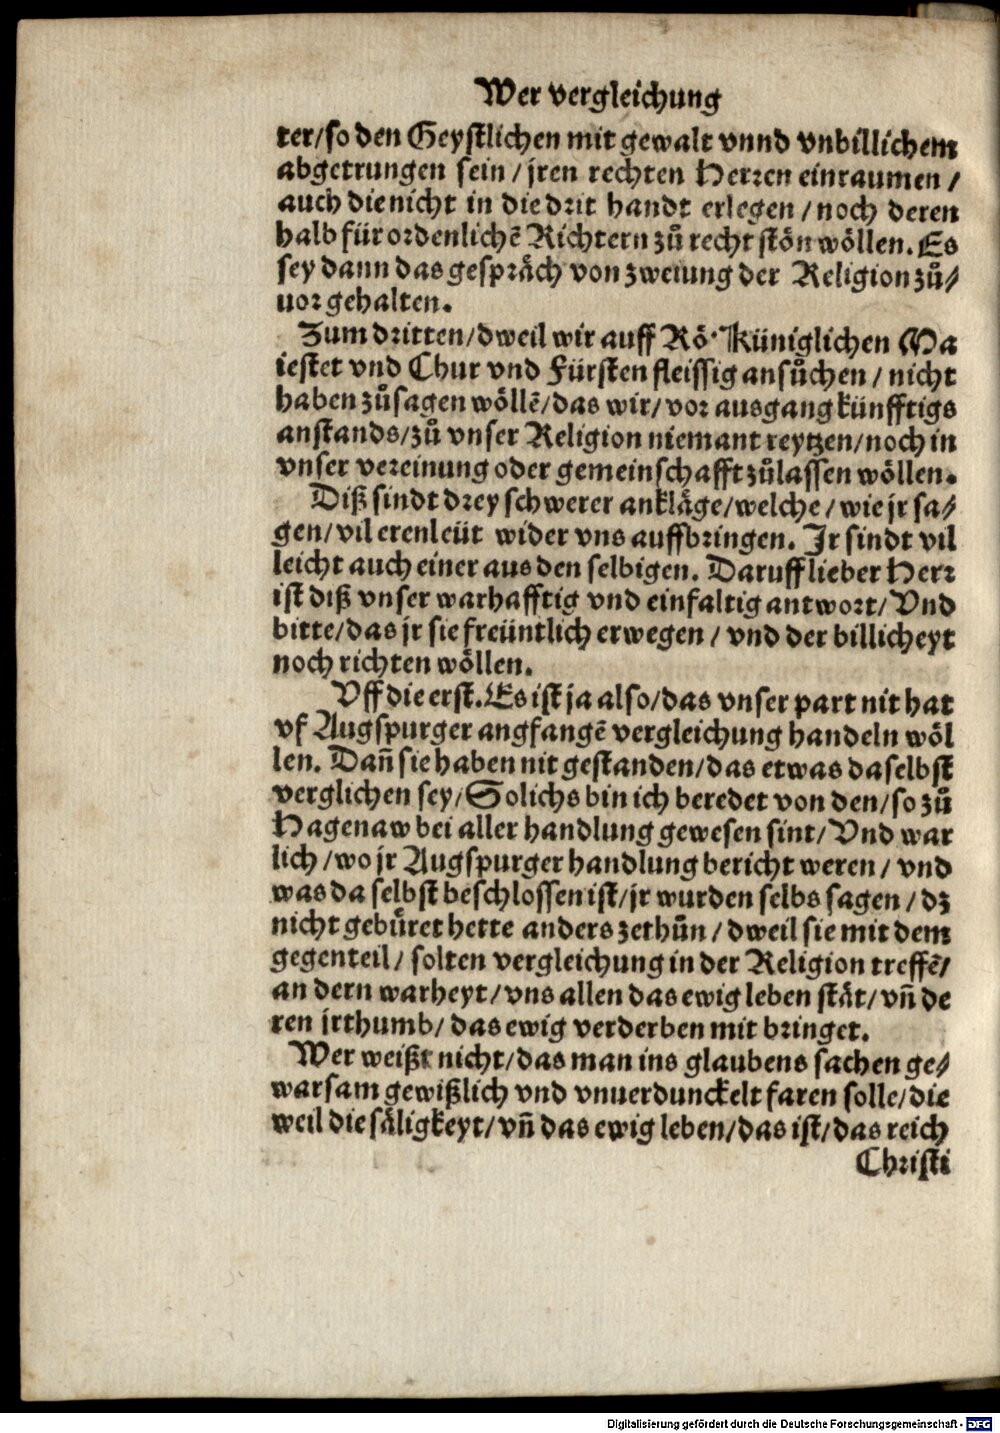 Wer vergleichung
ter/so den Geystlichen mit gewalt vnnd vnbillichem
abgetrungen sein / jren rechten Herren einraumen /
auch die nicht in die drit handt erlegen / noch deren
halb für ordenlichē Richtern zů recht stön wöllen. Es
sey dann das gespräch von zweiung der Religion zů/
uor gehalten.
Zum dritten/dweil wir auff Rö. Küniglichen Ma
iestet vnd Chur vnd Fürsten fleissig ansůchen / nicht
haben zůsagen wöllē/das wir/vor ausgang künfftigs
anstands/zů vnser Religion niemant reytzen/noch in
vnser vereinung oder gemeinschafft zůlassen wöllen.
Diß sindt drey schwerer ankläge/welche / wie jr sa/
gen/vil erenleüt wider vns auffbringen. Jr sindt vil
leicht auch einer aus den selbigen. Daruff lieber Herr
ist diß vnser warhafftig vnd einfaltig antwort/Vnd
bitte/das jr sie freüntlich erwegen / vnd der billicheyt
noch richten wöllen.
Vff die erst. Es ist ja also/das vnser part nit hat
vf Augspurger angfangē vergleichung handeln wöl
len. Dañ sie haben nit gestanden/das etwas daselbst
verglichen sey/Solichs bin ich beredet von den/so zů
Hagenaw bei aller handlung gewesen sint/Vnd war
lich /wo jr Augspurger handlung bericht weren / vnd
was da selbst beschlossen ist/jr wurden selbs sagen / dz
nicht gebüret hette anders zethůn / dweil sie mit dem
gegenteil/ solten vergleichung in der Religion treffē/
an dern warheyt/vns allen das ewig leben stät/vñ de
ren jrthumb/das ewig verderben mit bringet.
Wer weißt nicht/das man ins glaubens sachen ge/
warsam gewißlich vnd vnuerdunckelt faren solle/die
weil die säligkeyt/vñ das ewig leben/das ist/das reich
Christi
Digitalisierung gefördert durch die Deutsche Forschungsgemeinschaft - DFG